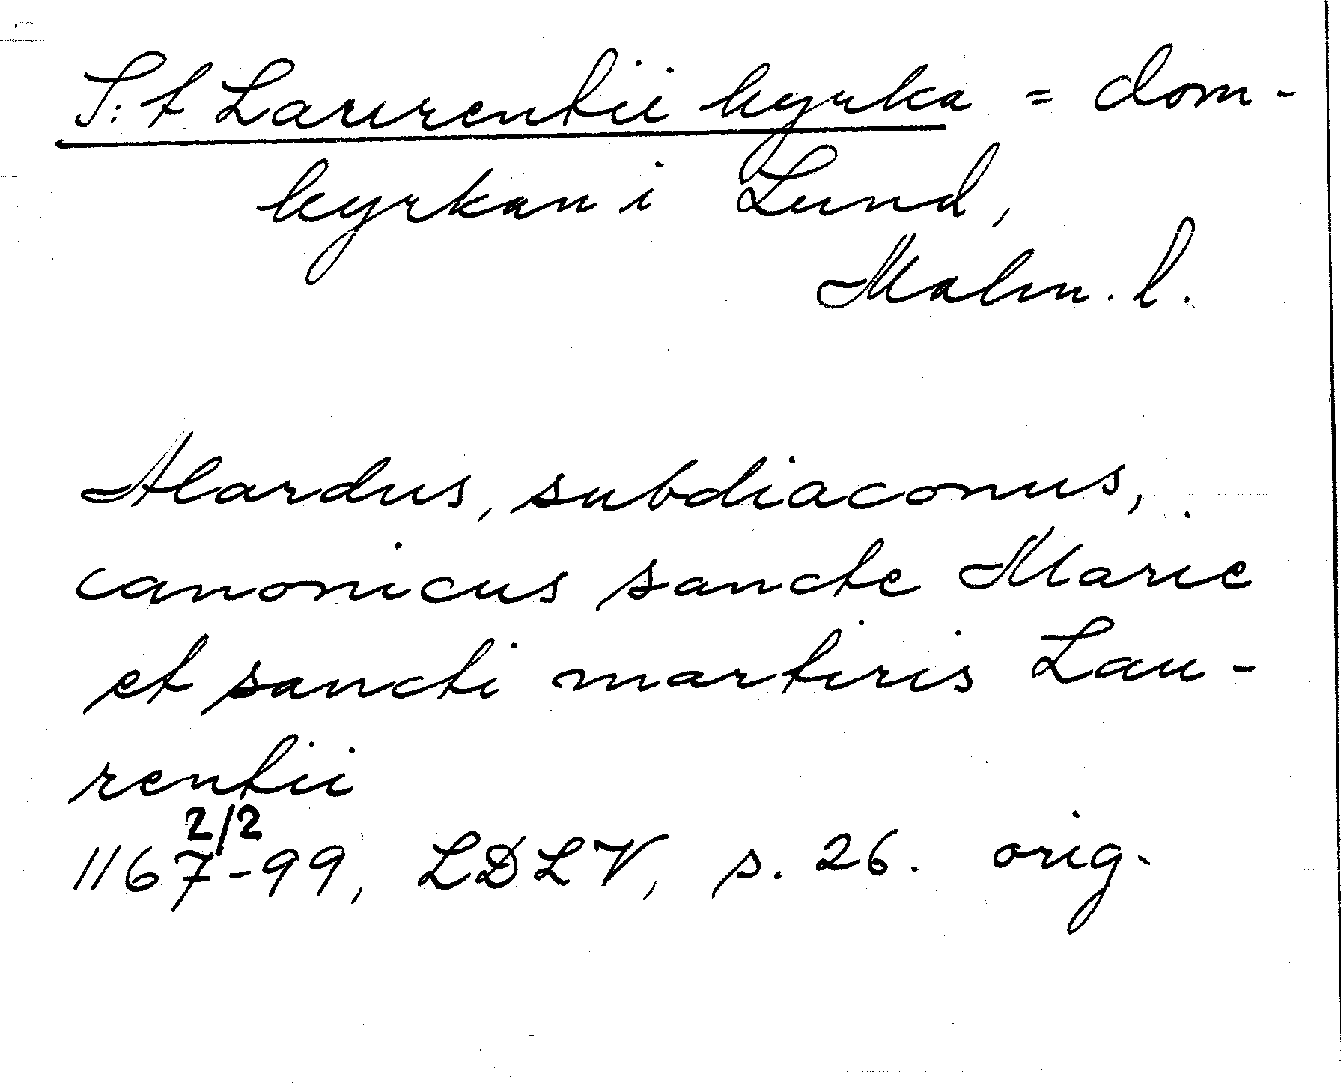 S:t Laurentii kyrka = dom-
kyrkan i Lund,
Malm. l.
Alardus, subdiaconus,
canonicus sancte Marie
et sancti martiris Lau-
rentii
2/2
1167-99, LDLV, s. 26. orig.